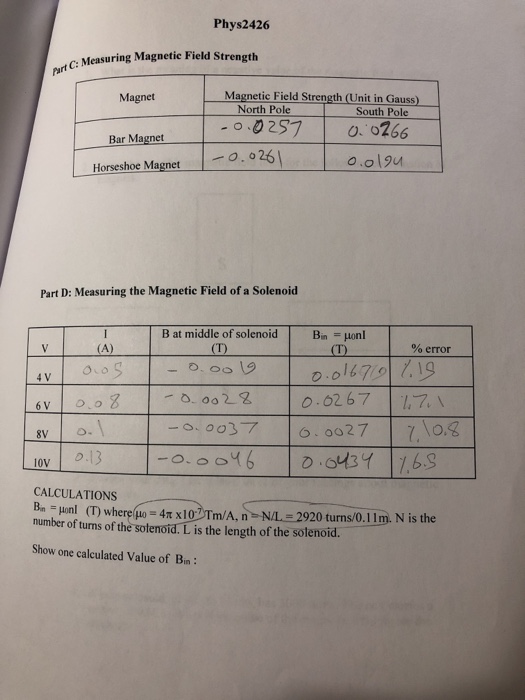 Phys2426
Part C: Measuring Magnetic Field Strength
Magnet
Magnetic Field Strength (Unit in Gauss)
North Pole South Pole
Bar Magnet -0.0257 0.0266
Horseshoe Magnet -0.0261 0.0194
Part D: Measuring the Magnetic Field of a Solenoid
V I (A) B at middle of solenoid (T) Bin = μonI (T) % error
4 V 0.05 -0.0019
6 V 0.08 -0.0028 0.0267
8V 0.1 -0.0037 0.0027 10.8
10V 0.13 -0.0046 0.0434
CALCULATIONS
Bin = μonI (T) where μo = 4π x10-7 Tm/A, n = N/L = 2920 turns/0.11m. N is the
number of turns of the solenoid. L is the length of the solenoid.
Show one calculated Value of Bin :